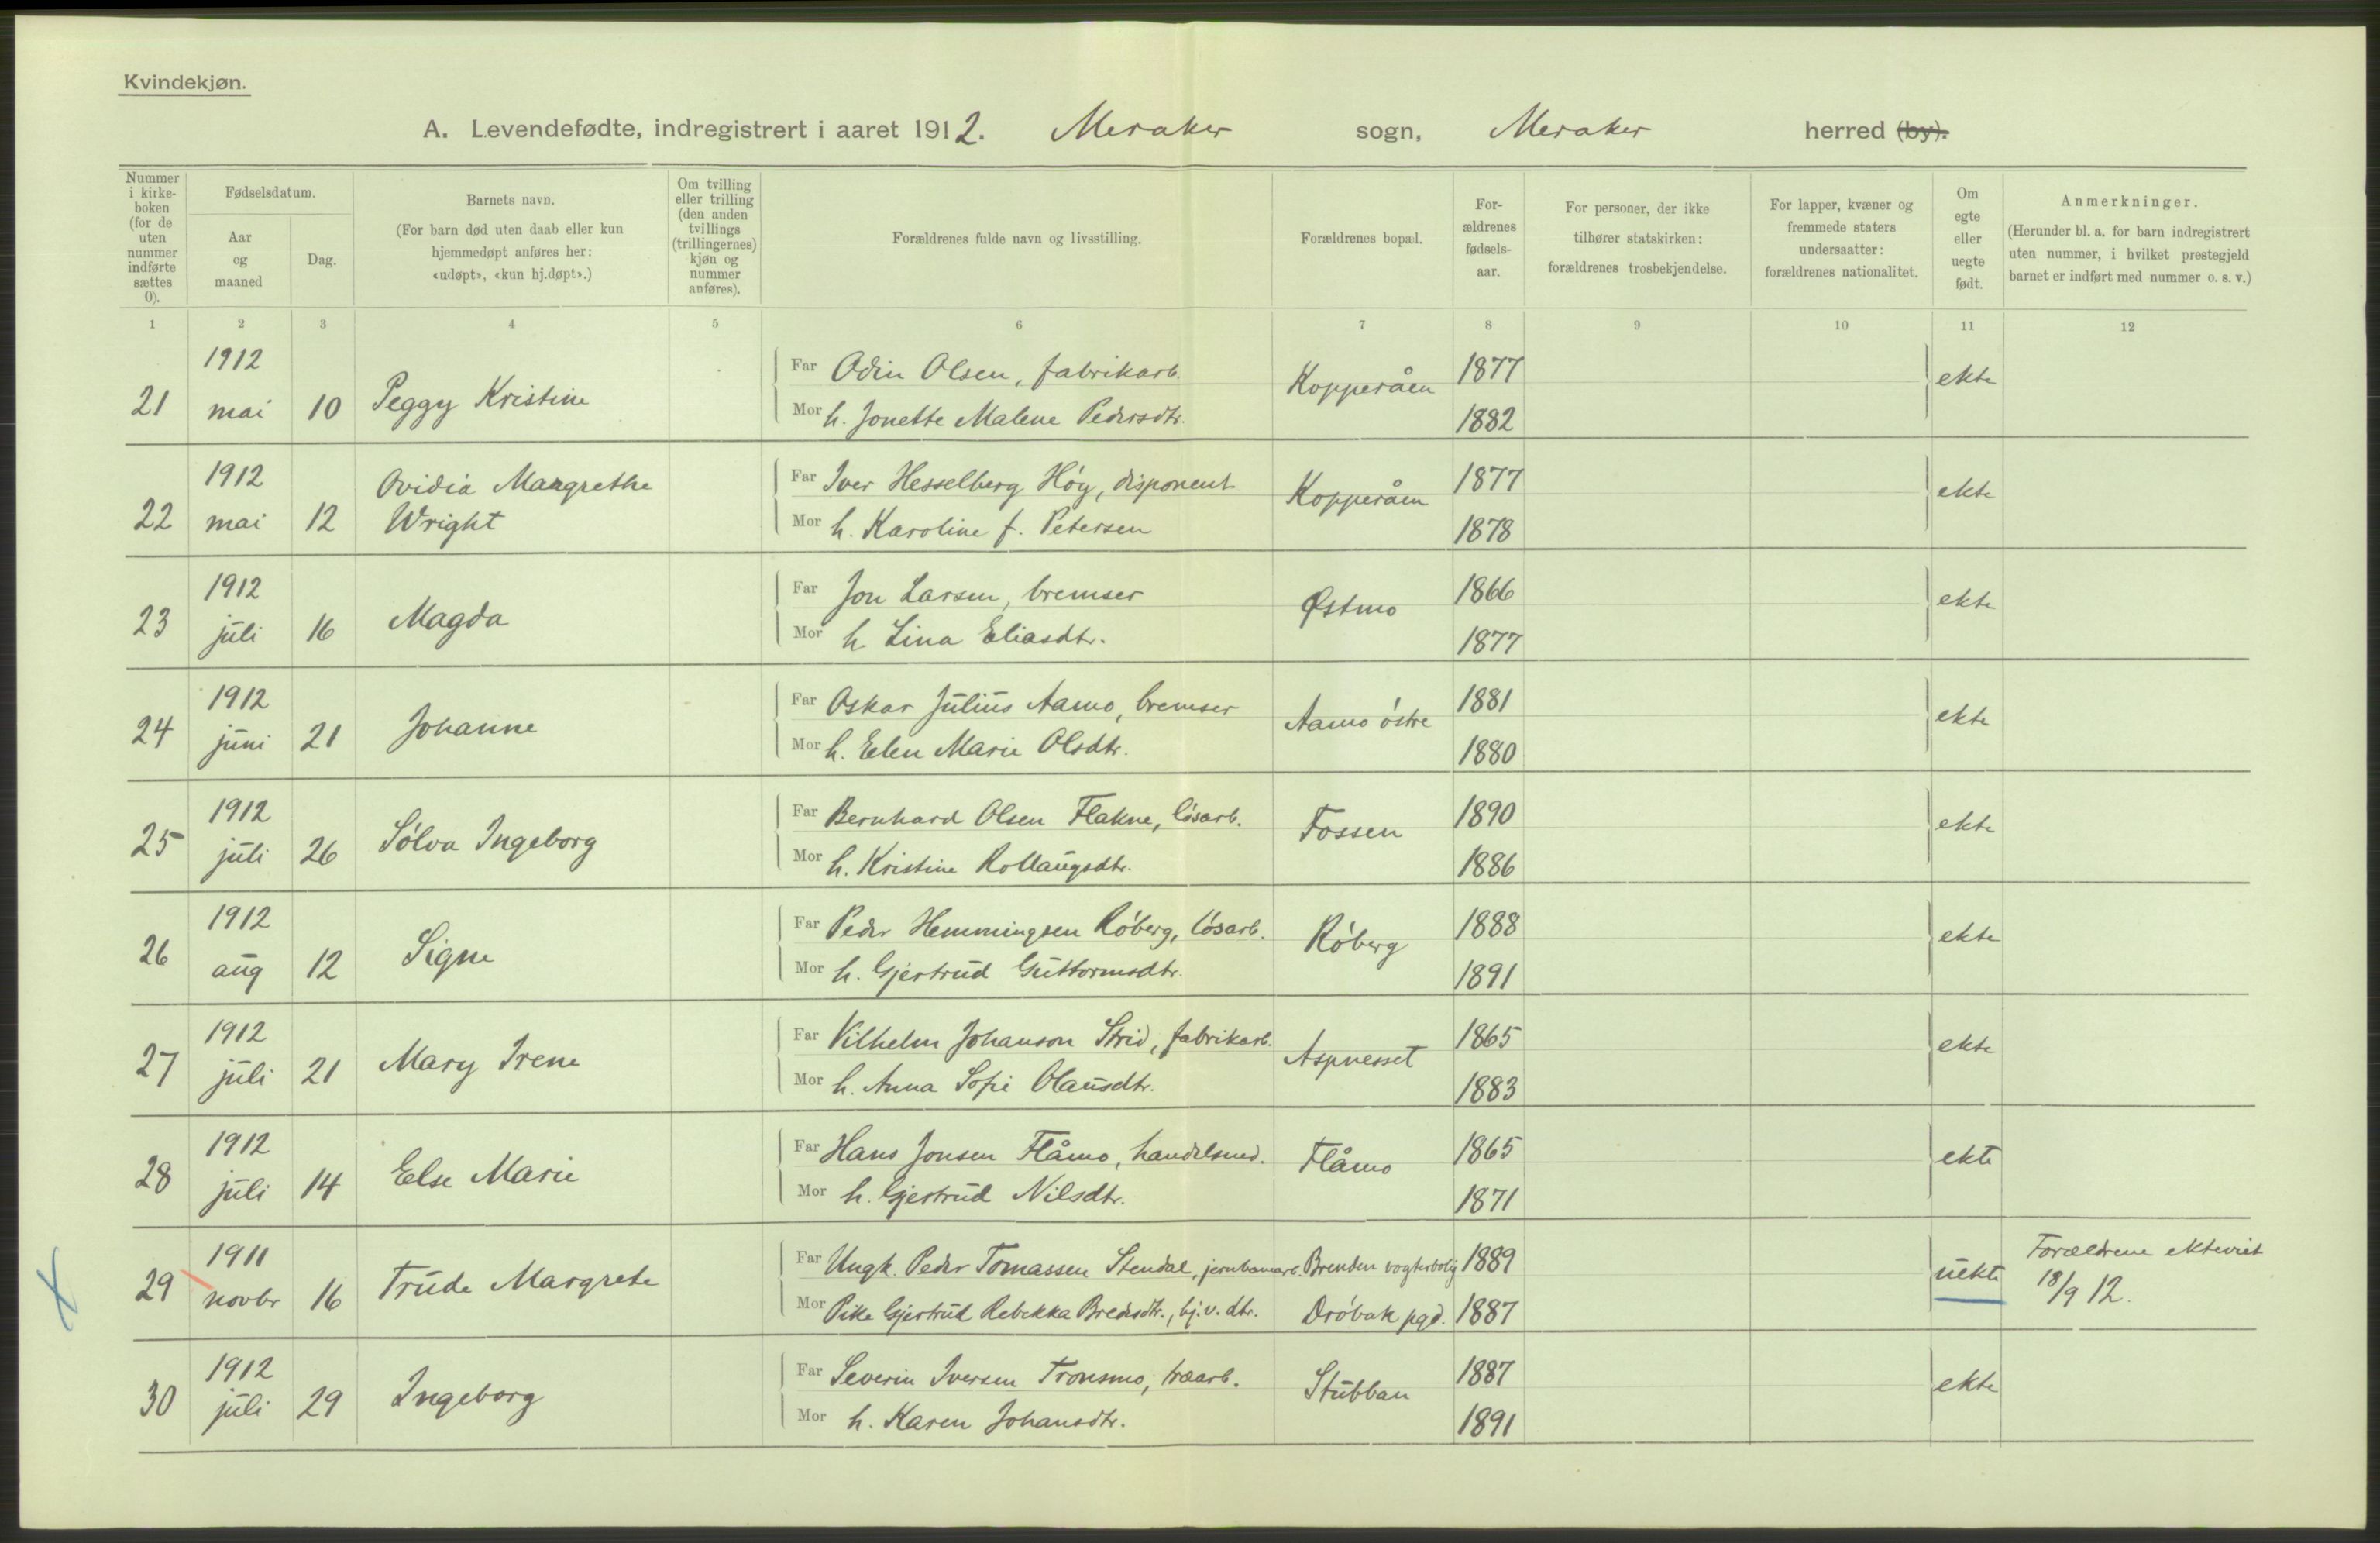 Kvindekjøn.
A. Levendefødte, indregistrert i aaret 1912. Meraker sogn, Meraker herred (by).
Nummer i kirke-boken (for de uten nummer indførte sættes 0).
Fødselsdatum.
Aar og maaned
Dag.
Barnets navn.
(For barn død uten daab eller kun hjemmedøpt anføres her: «udøpt», «kun hj.døpt».)
Om tvilling eller trilling (den anden tvillings (trillingernes) kjøn og nummer anføres).
Forældrenes fulde navn og livsstilling.
Forældrenes bopæl.
For-ældrenes fødsels-aar.
For personer, der ikke tilhører statskirken: forældrenes trosbekjendelse.
For lapper, kvæner og fremmede staters undersaatter: forældrenes nationalitet.
Om egte eller uegte født.
Anmerkninger.
(Herunder bl. a. for barn indregistrert uten nummer, i hvilket prestegjeld barnet er indført med nummer o. s. v.)
1 2 3 4 5 6 7 8 9 10 11 12
1912 Far Odin Olsen, fabrikarb. 1877
21 mai 10 Peggy Kristine Kopperåen ekte
Mor h. Jonette Malene Pedersdtr. 1882
1912 Ovidia Margrethe Far Iver Hesselberg Höy, disponent 1877
22 mai 12 Wright Kopperåen ekte
Mor h. Karoline f. Petersen 1878
1912 Far Jon Larsen, bremser 1866
23 juli 16 Magda Østmo ekte
Mor h. Lina Eliasdtr. 1877
1912 Far Oskar Julius Aamo, bremser 1881
24 juni 21 Johanne Aamo östre ekte
Mor h. Elen Marie Olsdtr. 1880
1912 Far Bernhard Olsen Flakne, lösarb. 1890
25 juli 26 Sölva Ingeborg Fossen ekte
Mor h. Kristine Rollaugsdtr. 1886
1912 Far Peder Hemmingsen Röberg, lösarb. 1888
26 aug 12 Signe Röberg ekte
Mor h. Gjertrud Guttormsdtr. 1891
1912 Far Vilhelm Johanson Strid, fabrikarb. 1865
27 juli 21 Mary Irene Aspnesset ekte
Mor h. Anna Sofie Olausdtr. 1883
1912 Far Hans Jonsen Flåmo, handelsmd. 1865
28 juli 14 Else Marie Flåmo ekte
Mor h. Gjertrud Nilsdtr. 1871
1911 Far Ungk. Peder Tomassen Stendal, jernbanearb. Brenden vogterbolig 1889 Forældrene ekteviet
29 novbr 16 Trude Margrete uekte 18/9 12.
Mor Pike Gjertrud Rebekka Bredesdtr., hj.v. dtr. Dröbak pgd. 1887
1912 Far Severin Iversen Tronsmo, træarb. 1887
30 juli 29 Ingeborg Stubban ekte
Mor h. Karen Johansdtr. 1891